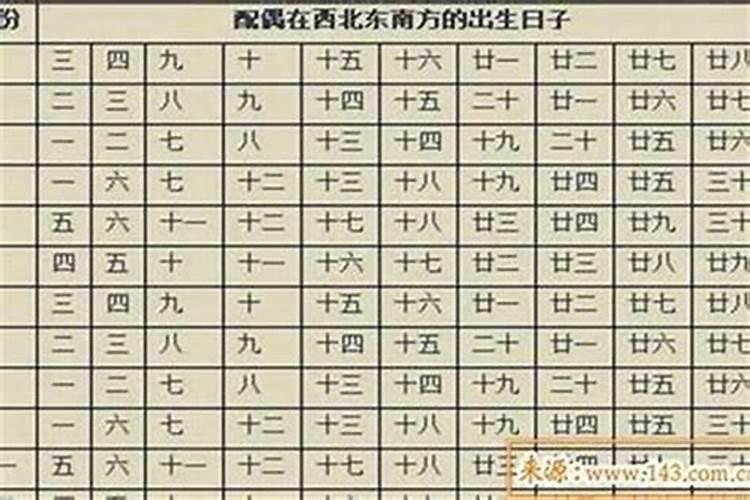 份 配偶在西北东南方的出生日子
三 四 九 十 十五 十六 廿一 廿二 廿七 廿八
二 三 八 九 十四 十五 二十 廿一 廿六 廿七
一 二 七 八 十三 十四 十九 二十 廿五 廿六
一 六 七 十二 十三 十八 十九 廿四 廿五 三十
五 六 十一 十二 十七 十八 廿三 廿四 廿九 三十
四 五 十 十一 十六 十七 廿二 廿三 廿八 廿九
三 四 九 十 十五 十六 廿一 廿二 廿七 廿八
二 三 八 九 十四 十五 二十 廿一 廿六 廿七
一 二 七 八 十三 十四 十九 二十 廿五 廿六
一 六 七 十二 十三 十八 十九 廿四 廿五 三十
一 五 六 十一 十二 十七 十八 廿三
来源:www.143.com.cn